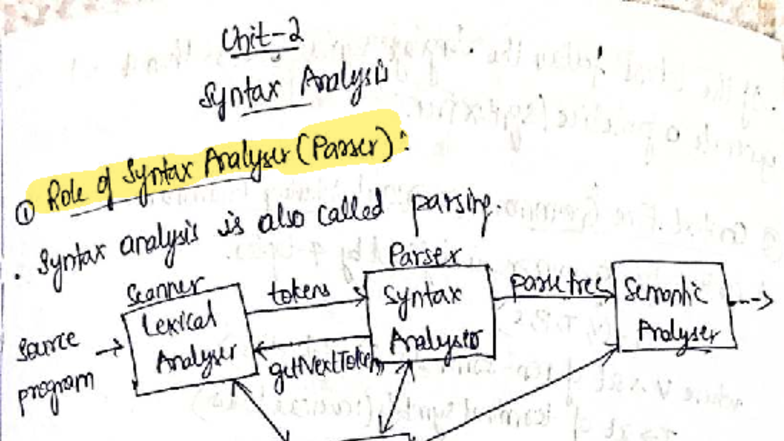 Unit-2
Syntax Analysis
① Role of Syntax Analyser (Parser):
. Syntax analysis is also called parsing.
Scanner
Parser
source program
Lexical Analyser
tokens
getNextToken
Syntax Analyser
parse tree
Semantic Analyser